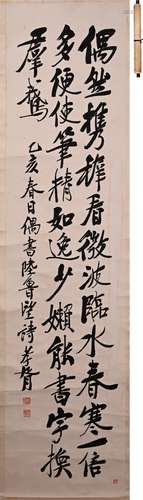 偶然携稚看微波臨水春寒一倍
多便使筆精如逸少嬾能書字換
羣鵝 乙亥春日偶書陸魯望詩 孝胥